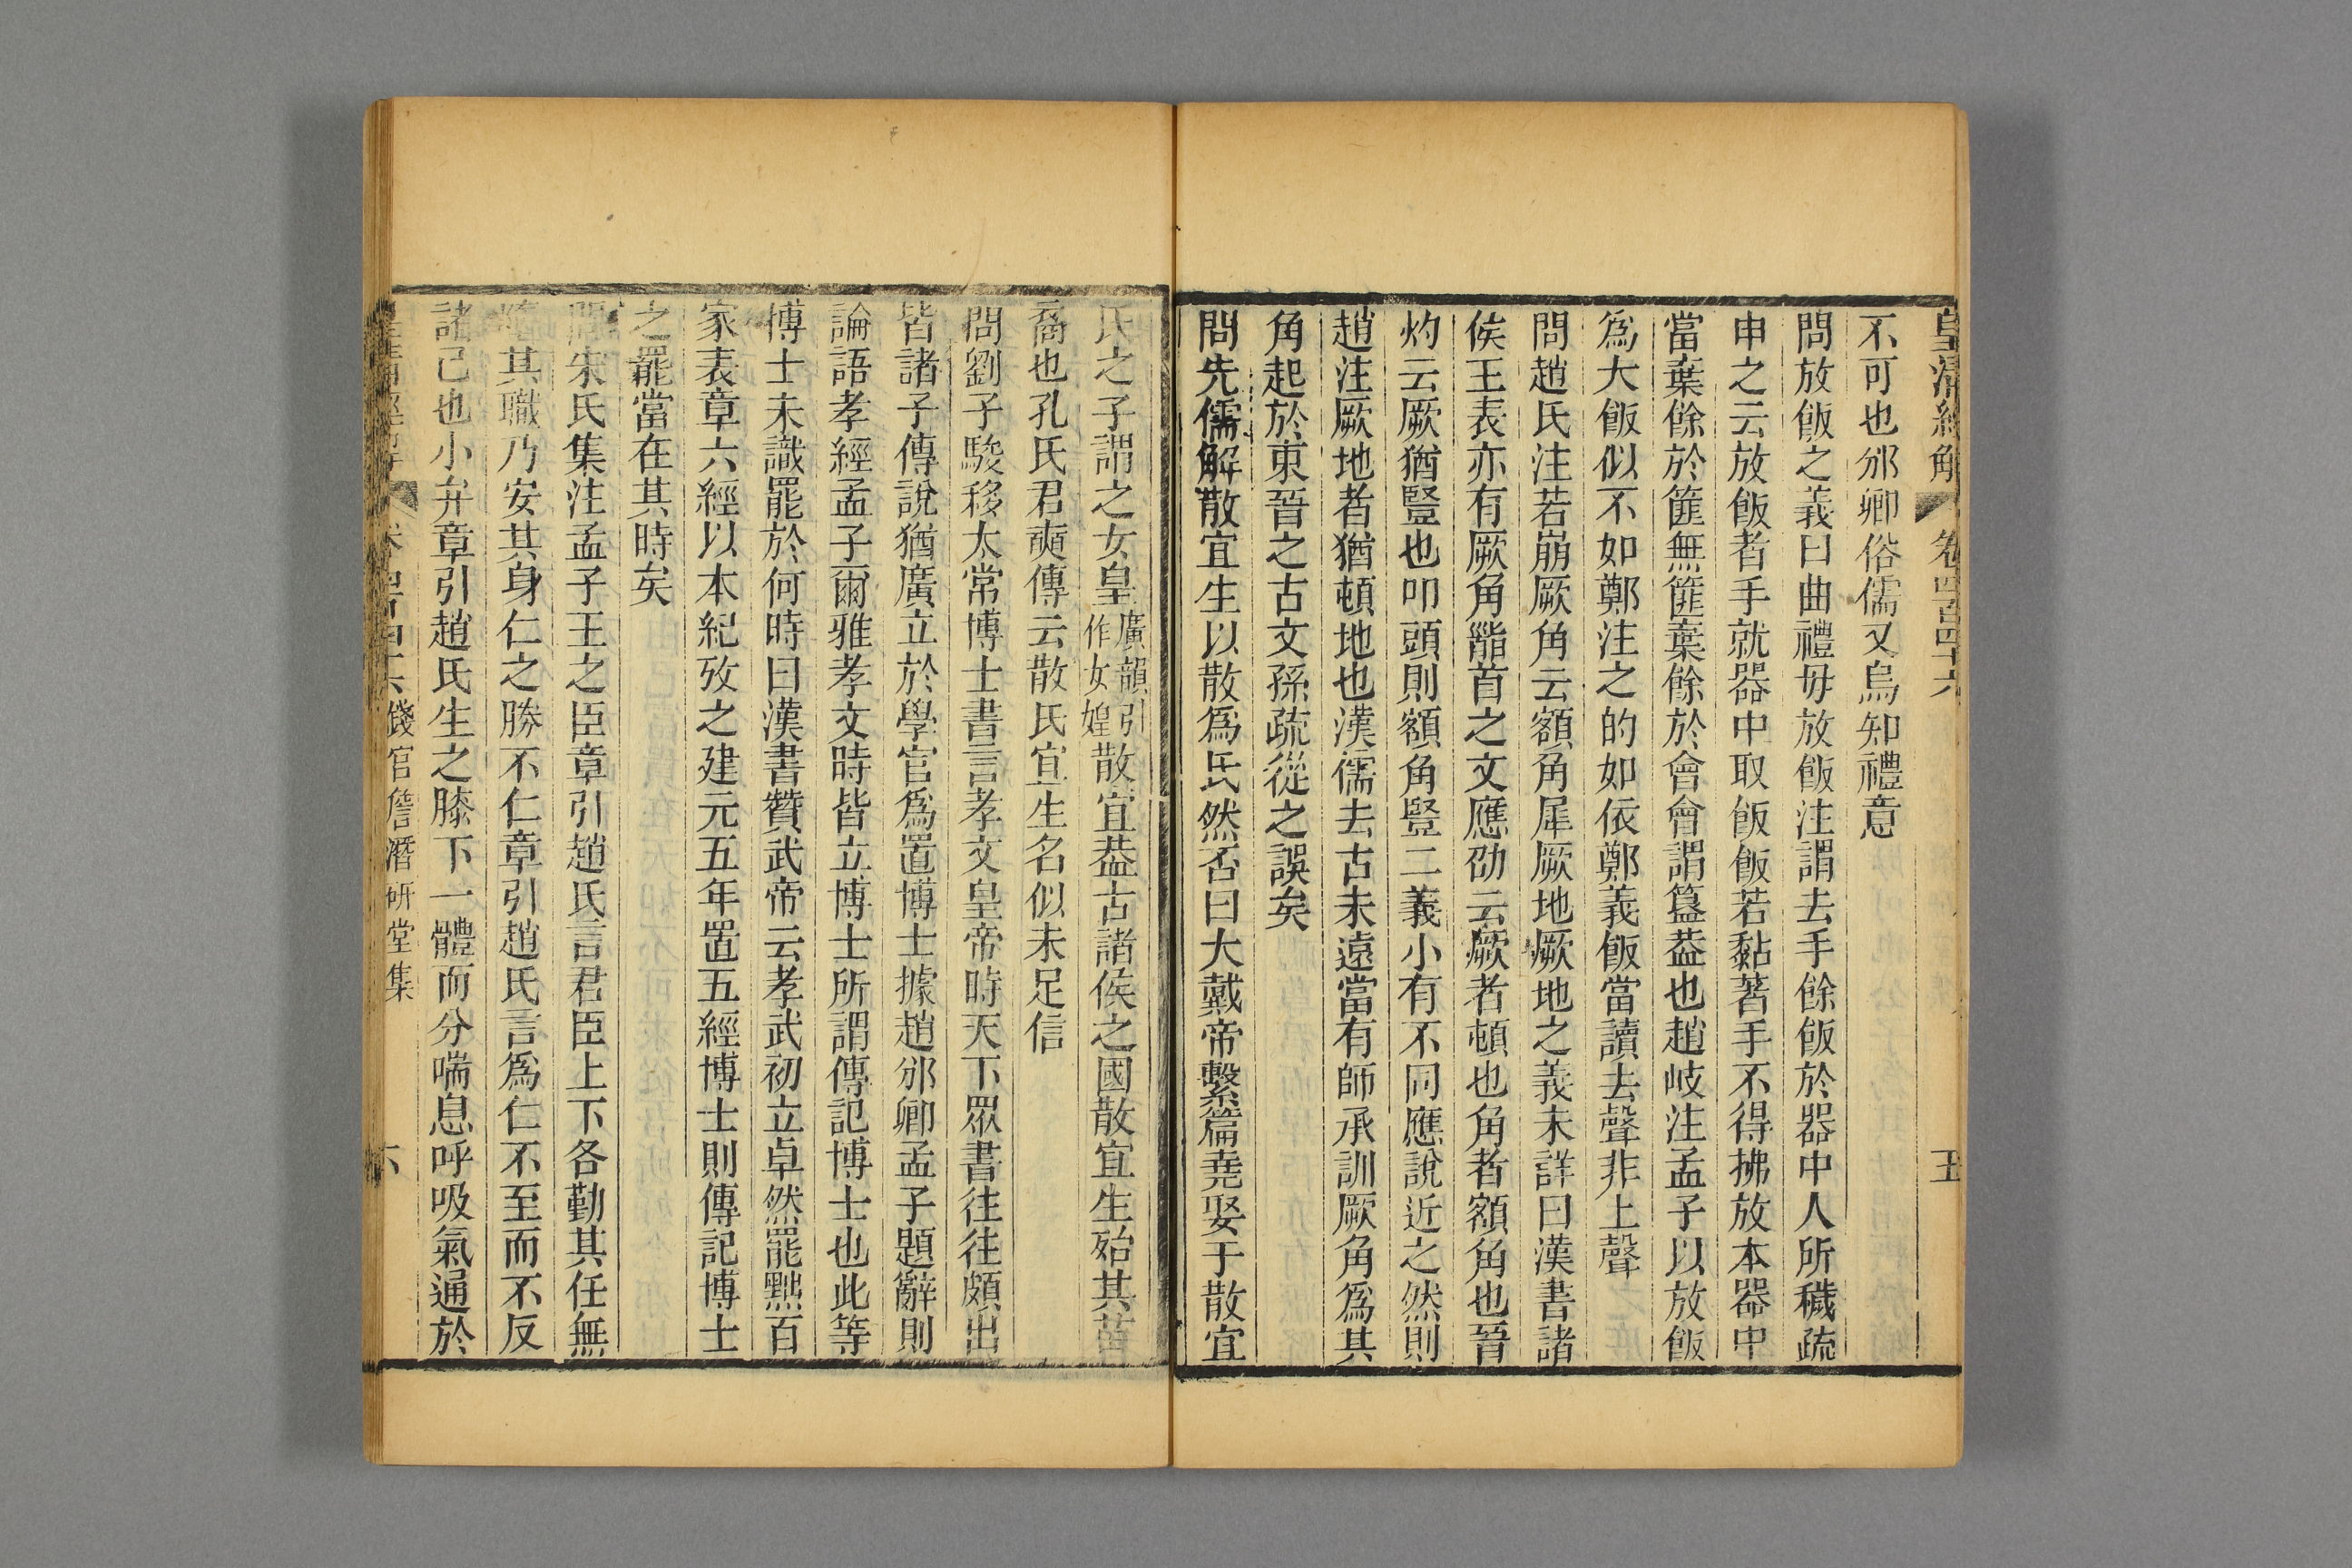 皇清經解 卷四百四十六 五
不可也邠卿俗儒又烏知禮意
問放飯之義曰曲禮毋放飯注謂去手餘飯於器中人所穢疏
申之云放飯者手就器中取飯飯若黏著手不得拂放本器中
當棄餘於篚無篚棄餘於會會謂簋葢也趙岐注孟子以放飯
爲大飯似不如鄭注之的如依鄭義飯當讀去聲非上聲
問趙氏注若崩厥角云額角犀厥地厥地之義未詳曰漢書諸
侯王表亦有厥角䭫首之文應劭云厥者頓也角者額角也晉
灼云厥猶豎也叩頭則額角豎二義小有不同應說近之然則
趙注厥地者猶頓地也漢儒去古未遠當有師承訓厥角爲其
角起於東晉之古文孫疏從之誤矣
問先儒解散宜生以散爲氏然否曰大戴帝繫篇堯娶于散宜
氏之子謂之女皇廣韻引作女媓散宜葢古諸侯之國散宜生殆其苗
裔也孔氏君奭傳云散氏宜生名似未足信
問劉子駿移太常博士書言孝文皇帝時天下眾書往往頗出
皆諸子傳說猶廣立於學官爲置博士據趙邠卿孟子題辭則
論語孝經孟子爾雅孝文時皆立博士所謂傳記博士也此等
博士未識罷於何時曰漢書贊武帝云孝武初立卓然罷黜百
家表章六經以本紀攷之建元五年置五經博士則傳記博士
之罷當在其時矣
問朱氏集注孟子王之臣章引趙氏言君臣上下各勤其任無
墮其職乃安其身仁之勝不仁章引趙氏言爲仁不至而不反
諸己也小弁章引趙氏生之膝下一體而分喘息呼吸氣通於
皇清經解 卷四百四十六 錢宮詹潛研堂集 六